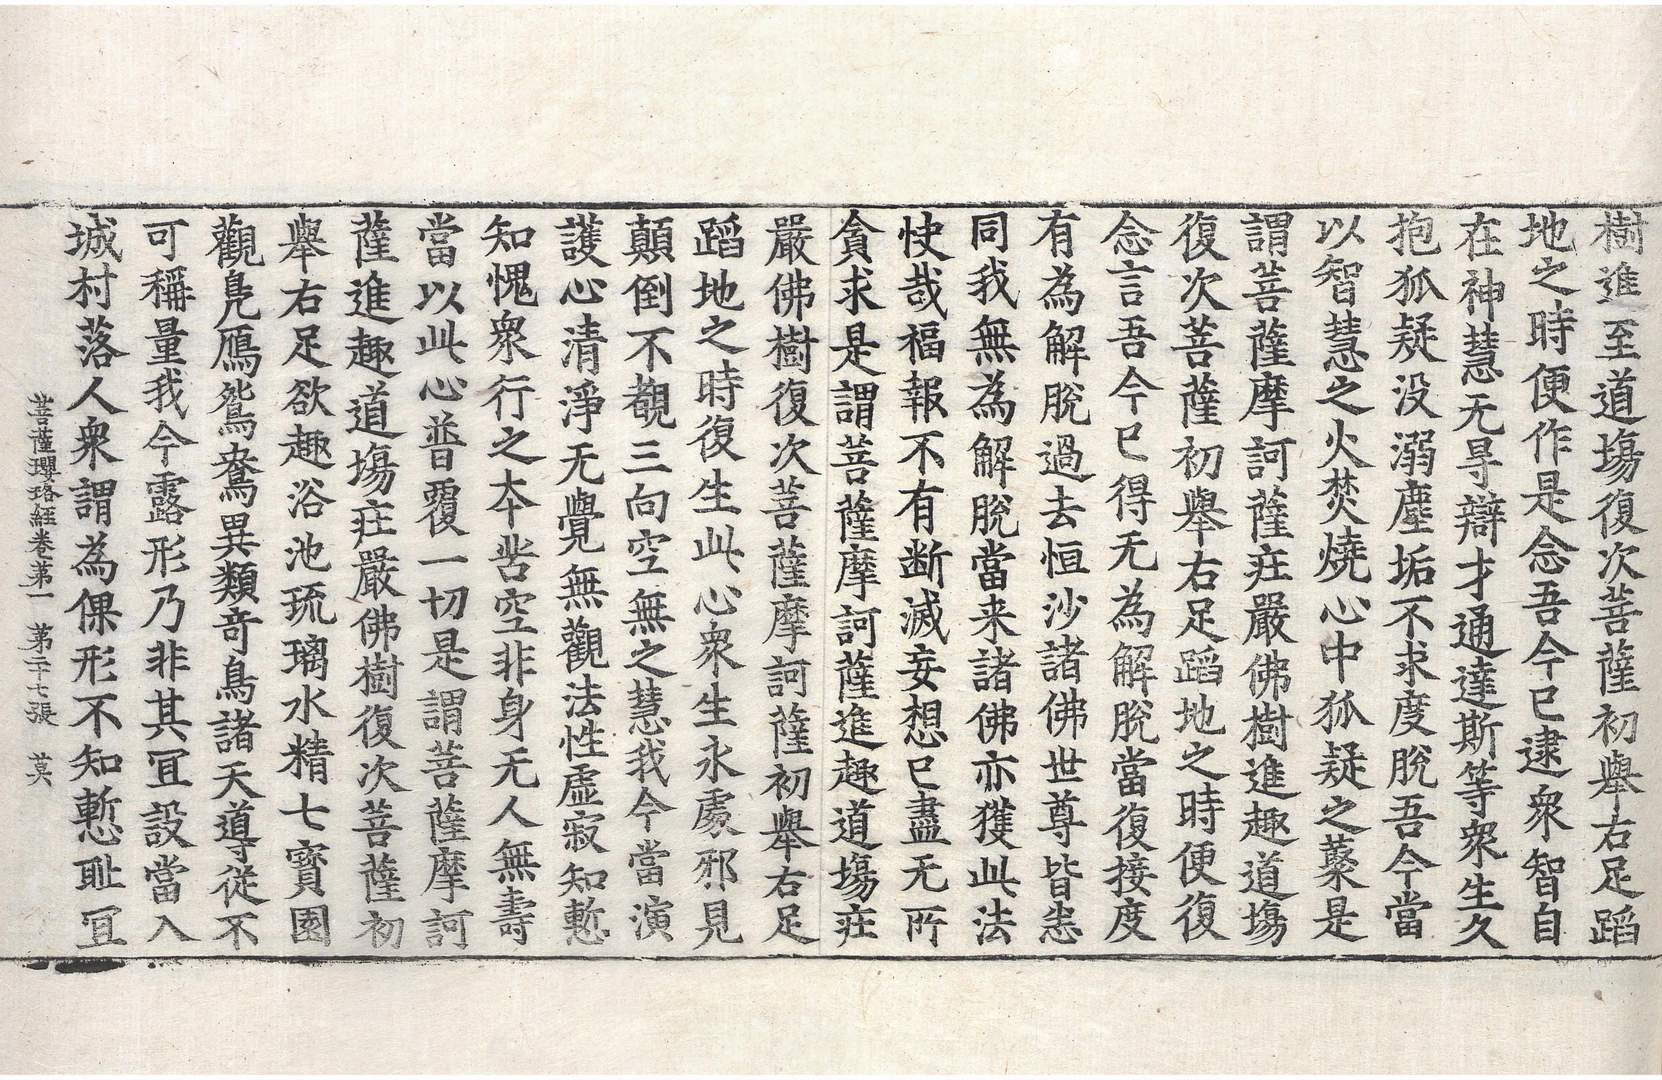 樹進至道場復次菩薩初舉右足蹈
地之時便作是念吾今已逮衆智自
在神慧无㝵辯才通達斯等衆生久
抱狐疑没溺塵垢不求度脫吾今當
以智慧之火焚燒心中狐疑之藂是
謂菩薩摩訶薩莊嚴佛樹進趣道場
復次菩薩初舉右足蹈地之時便復
念言吾今已得无為解脫當復接度
有為解脫過去恒沙諸佛世尊皆悉
同我無為解脫當来諸佛亦獲此法
快哉福報不有断滅妄想已盡无所
貪求是謂菩薩摩訶薩進趣道場莊
嚴佛樹復次菩薩摩訶薩初舉右足
蹈地之時復生此心衆生永處邪見
顛倒不覩三向空無之慧我今當演
護心清淨无覺無觀法性虛寂知慙
知愧衆行之本皆空非身无人無壽
當以此心普覆一切是謂菩薩摩訶
薩進趣道場莊嚴佛樹復次菩薩初
舉右足欲趣浴池琉璃水精七寶園
觀鳧鴈鴛鴦異類奇鳥諸天導從不
可稱量我今露形乃非其冝設當入
城村落人衆謂為倮形不知慙耻冝
菩薩瓔珞経卷第一　第二十七張　莫